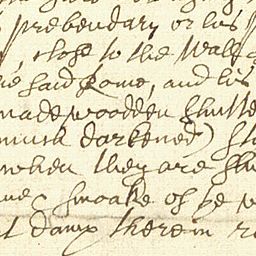 prebendary or his
, close to the Wall
said Rome, and his
made wooddin Shutte
much darkened) St
when they are Shu
Smoake of ye w
t damp therein r